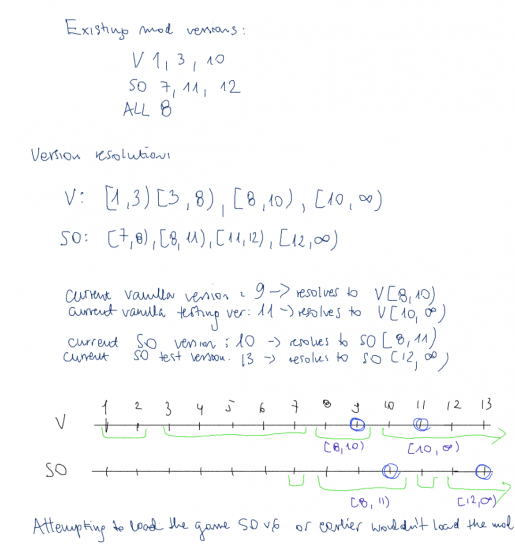 Existing mod versions:
V 1, 3, 10
SO 7, 11, 12
ALL 8
Version resolution:
V: [1,3) [3,8), [8,10), [10,∞)
SO: [7,8), [8,11), [11,12), [12,∞)
current vanilla version: 9 -> resolves to V[8,10)
current vanilla testing ver: 11 -> resolves to V[10,∞)
current SO version: 10 -> resolves to SO[8,11)
current SO test version: 13 -> resolves to SO[12,∞)
1 2 3 4 5 6 7 8 9 10 11 12 13
V
[8,10) [10,∞)
SO
[8,11) [12,∞)
Attempting to load the game SO v6 or earlier wouldn't load the mod